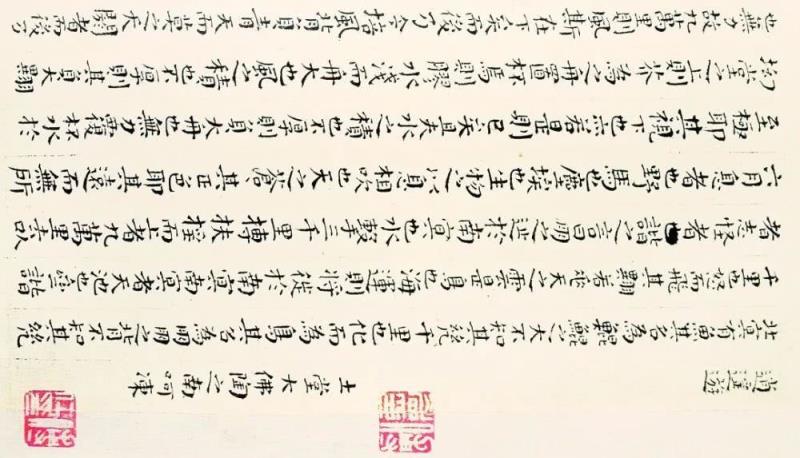 逍遙遊
北冥有魚其名為鯤鯤之大不知其幾千里也化而為鳥其名為鵬鵬之背不知其幾
千里也怒而飛其翼若垂天之雲是鳥也海運則將徙於南冥南冥者天池也齊諧
者志怪者也諧之言曰鵬之徙於南冥也水擊三千里摶扶搖而上者九萬里去以
六月息者也野馬也塵埃也生物之以息相吹也天之蒼、其正色耶其遠而無所
至極耶其視下也亦若是則已矣且夫水之積也不厚則負大舟也無力覆杯水於
坳堂之上則芥為之舟置杯焉則膠水淺而舟大也風之積也不厚則其負大翼
也無力故九萬里則風斯在下矣而後乃今培風背負青天而莫之夭閼者而後乃
土堂大佛陶之南呵凍